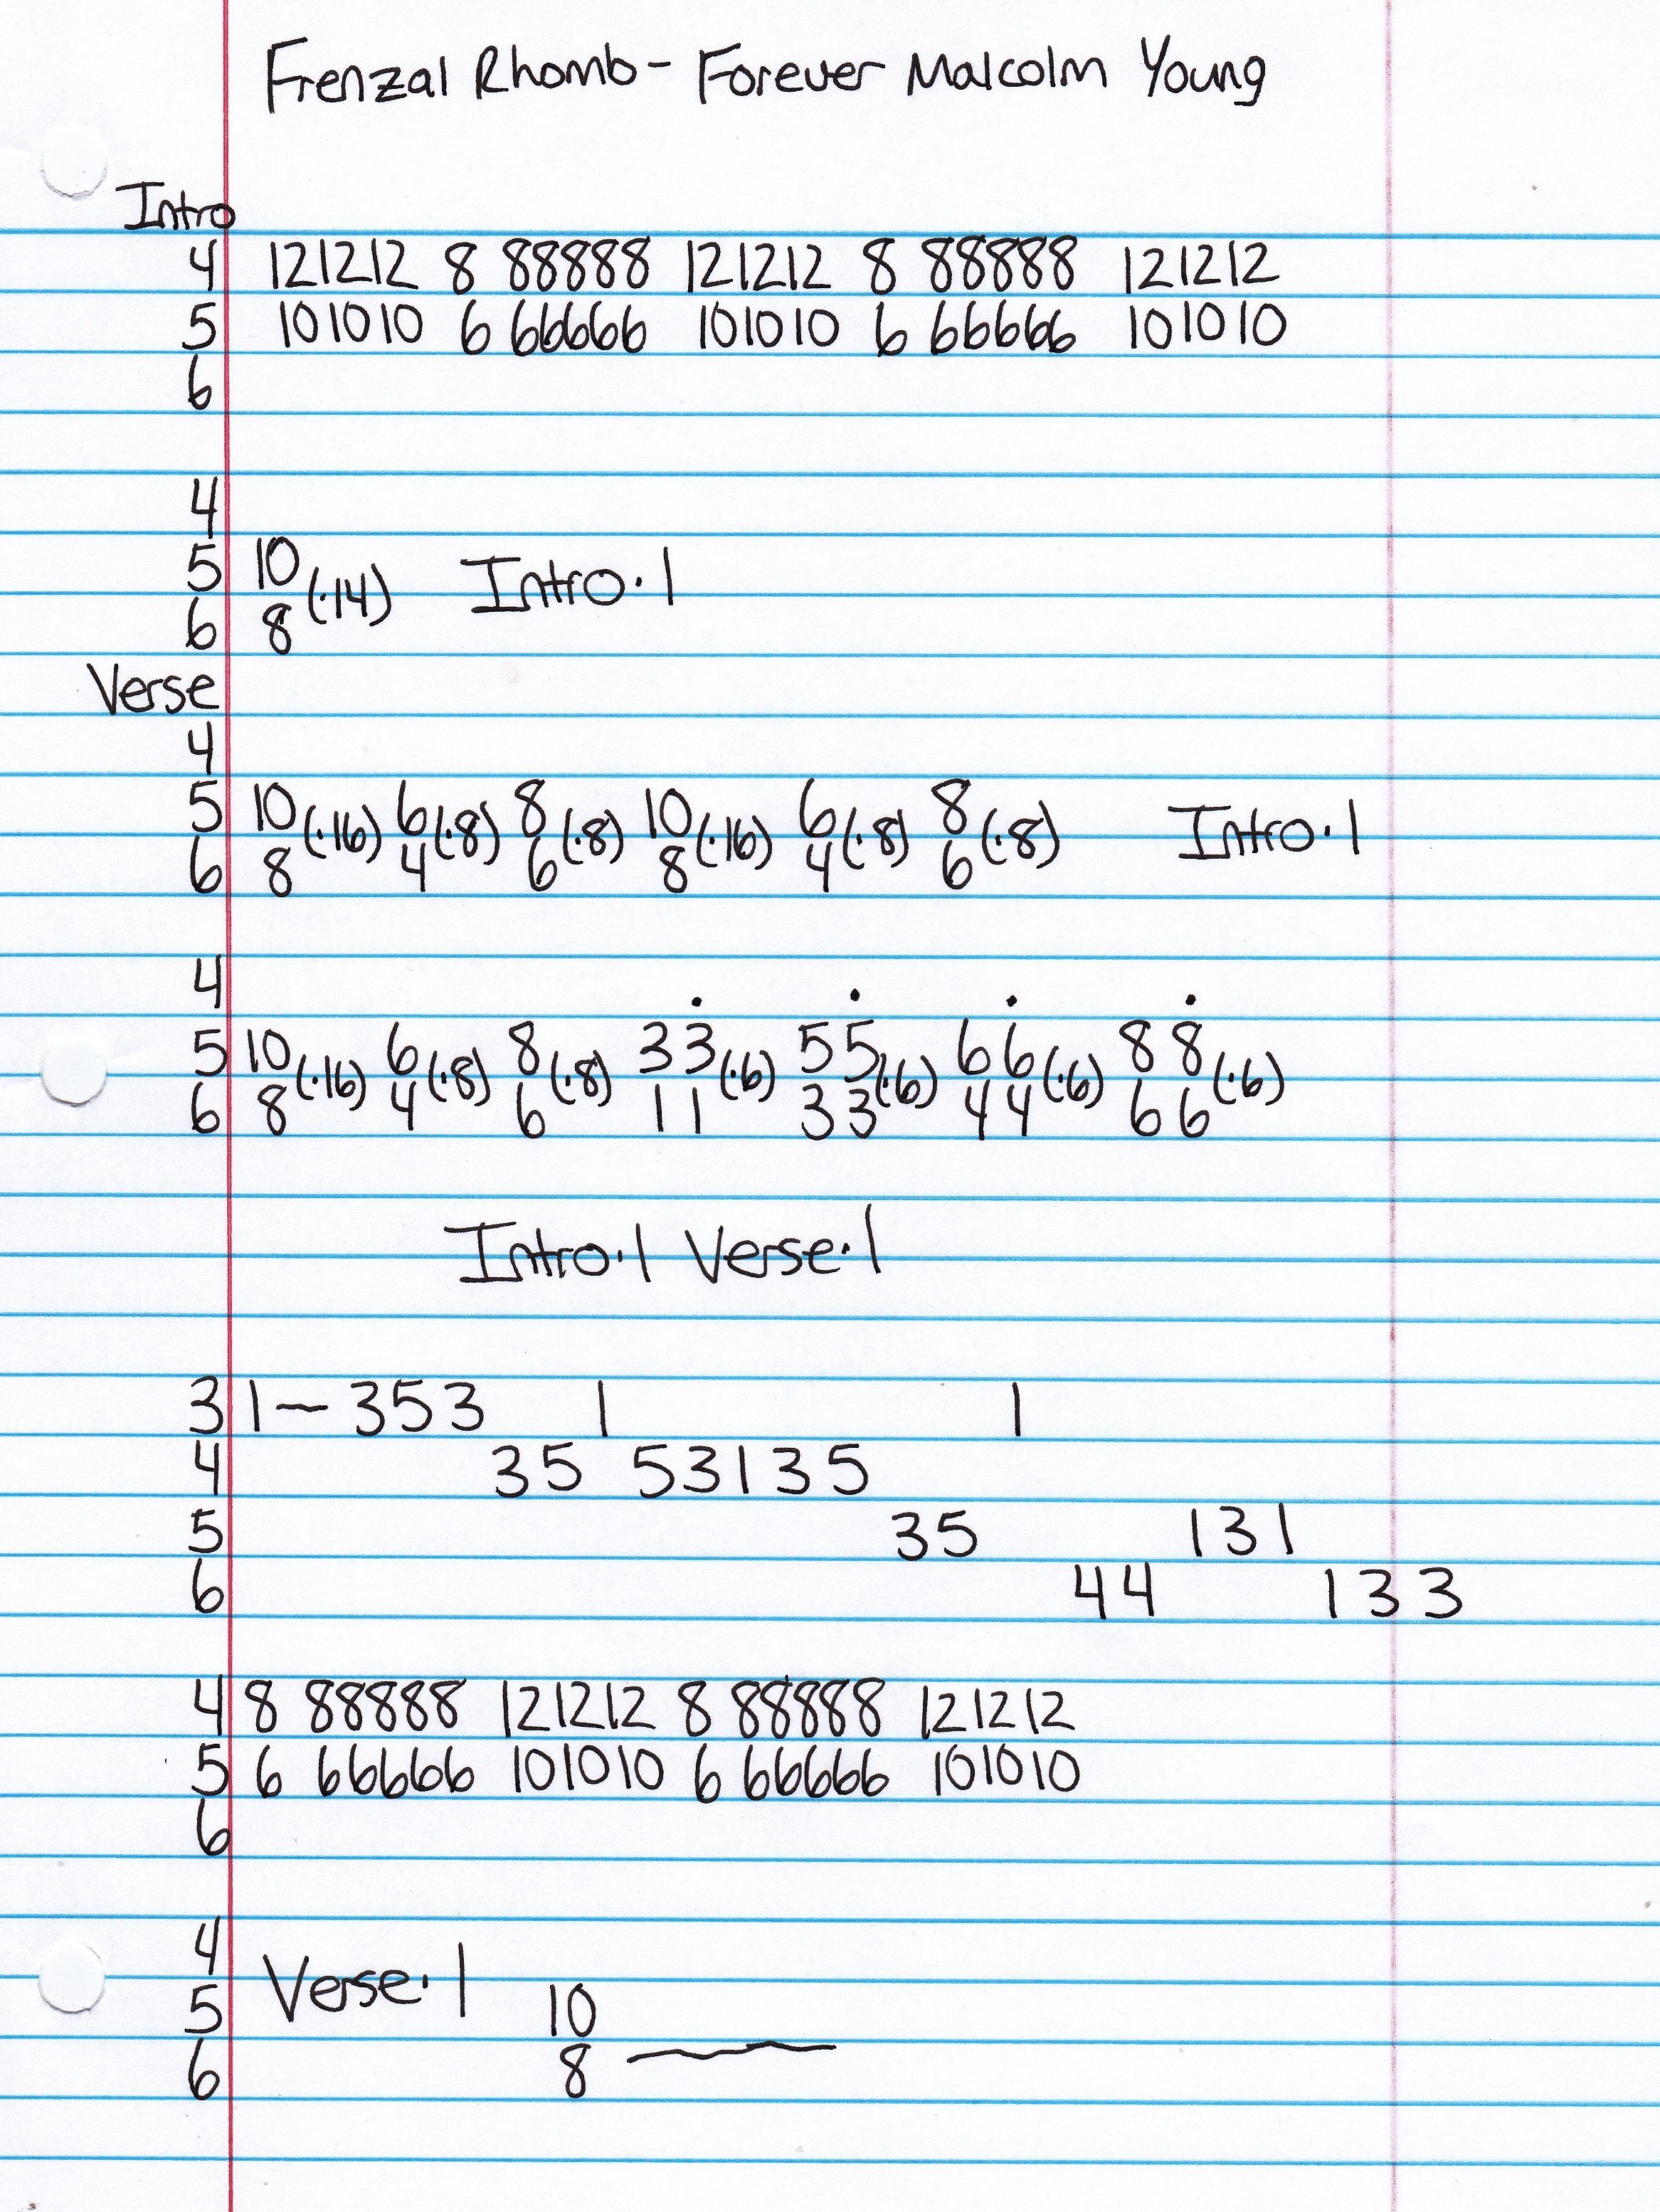 Frenzal Rhomb - Forever Malcolm Young
Intro
4 121212 8 88888 121212 8 88888 121212
5 101010 6 66666 101010 6 66666 101010
6
4
5 10
(·14) Intro·1
6 8
Verse
4
5 10(·16) 6(·8) 8(·8) 10(·16) 6(·8) 8(·8) Intro·1
6 8 4 6 8 4 6
4
5 10(·16) 6(·8) 8(·8) 33(·6) 55(·6) 66(·6) 88(·6)
6 8 4 6 11 33 44 66
Intro·1 Verse·1
3 1~ 353 1 1
4 35 53135
5 35 131
6 44 133
4 8 88888 121212 8 88888 121212
5 6 66666 101010 6 66666 101010
6
4
5 Verse·1 10
6 8